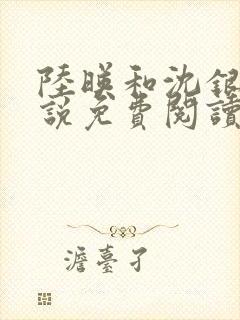 陸暎和沈銀
說免費閱讀
澹臺孑